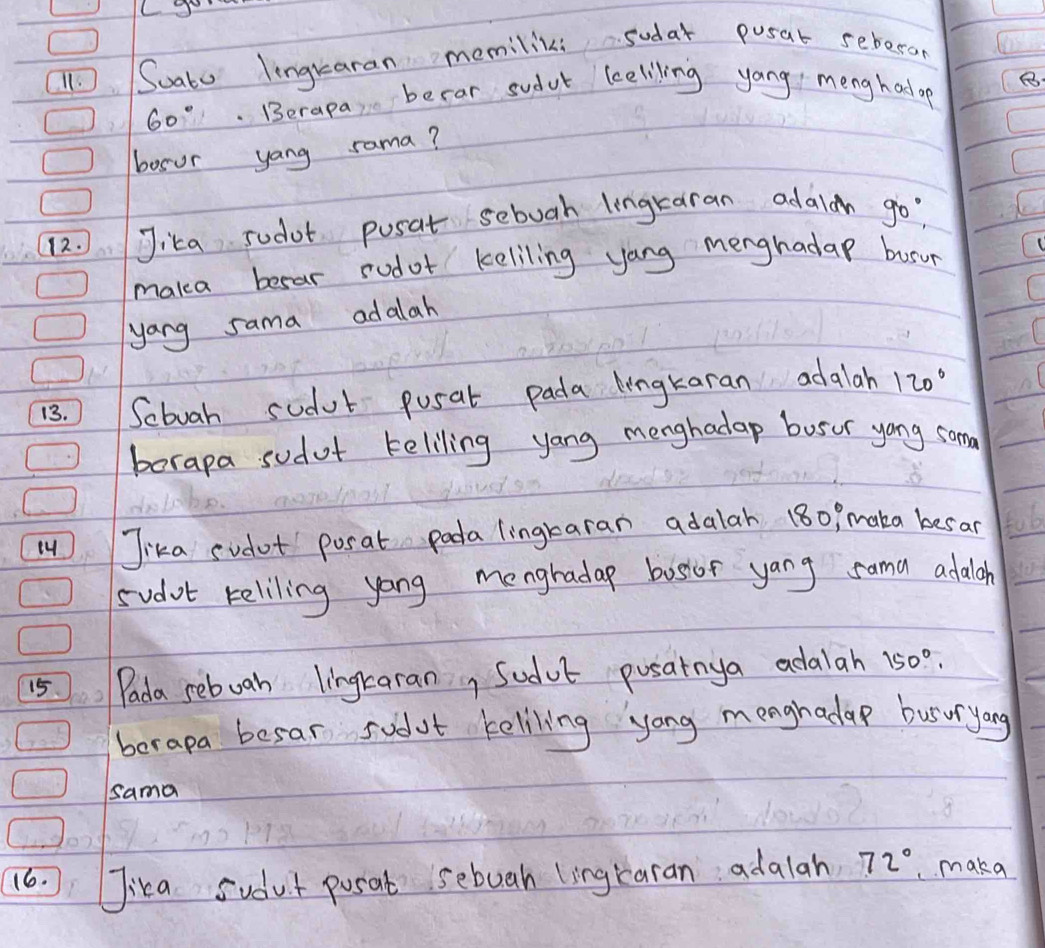 11. Suatu lingkaran memiliki sudat pusat sebesar
60°. Berapa besar sudut keliling yang menghadap
busur yang sama?
12. Jika sudut pusat sebuah lingkaran adalah 90°.
maka besar sudut keliling yang menghadap busur
yang sama adalah
13. Sebuah sudut pusat pada lingkaran adalah 120°
berapa sudut keliling yang menghadap busur yang sama
14 Jika sudut pusat pada lingkaran adalah 180°, maka besar
sudut keliling yang menghadap busur yang sama adalah
15. Pada sebuah lingkaran, Sudut pusatnya adalah 150°.
berapa besar sudut keliling yang menghadap busur yang
sama
16. Jika sudut pusat sebuah lingkaran adalah 72°. maka